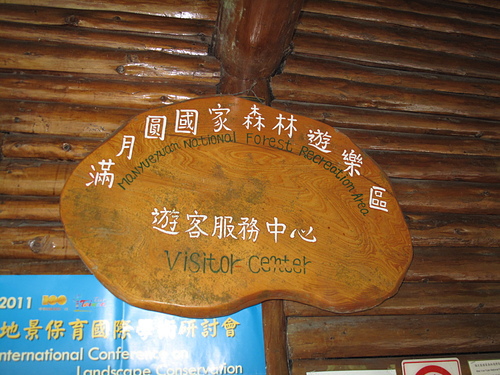 滿月圓國家森林遊樂區
Manyueyuan National Forest Recreation Area
遊客服務中心
Visitor center
2011
地景保育國際學術研討會
International Conference on
Landscape Conservation